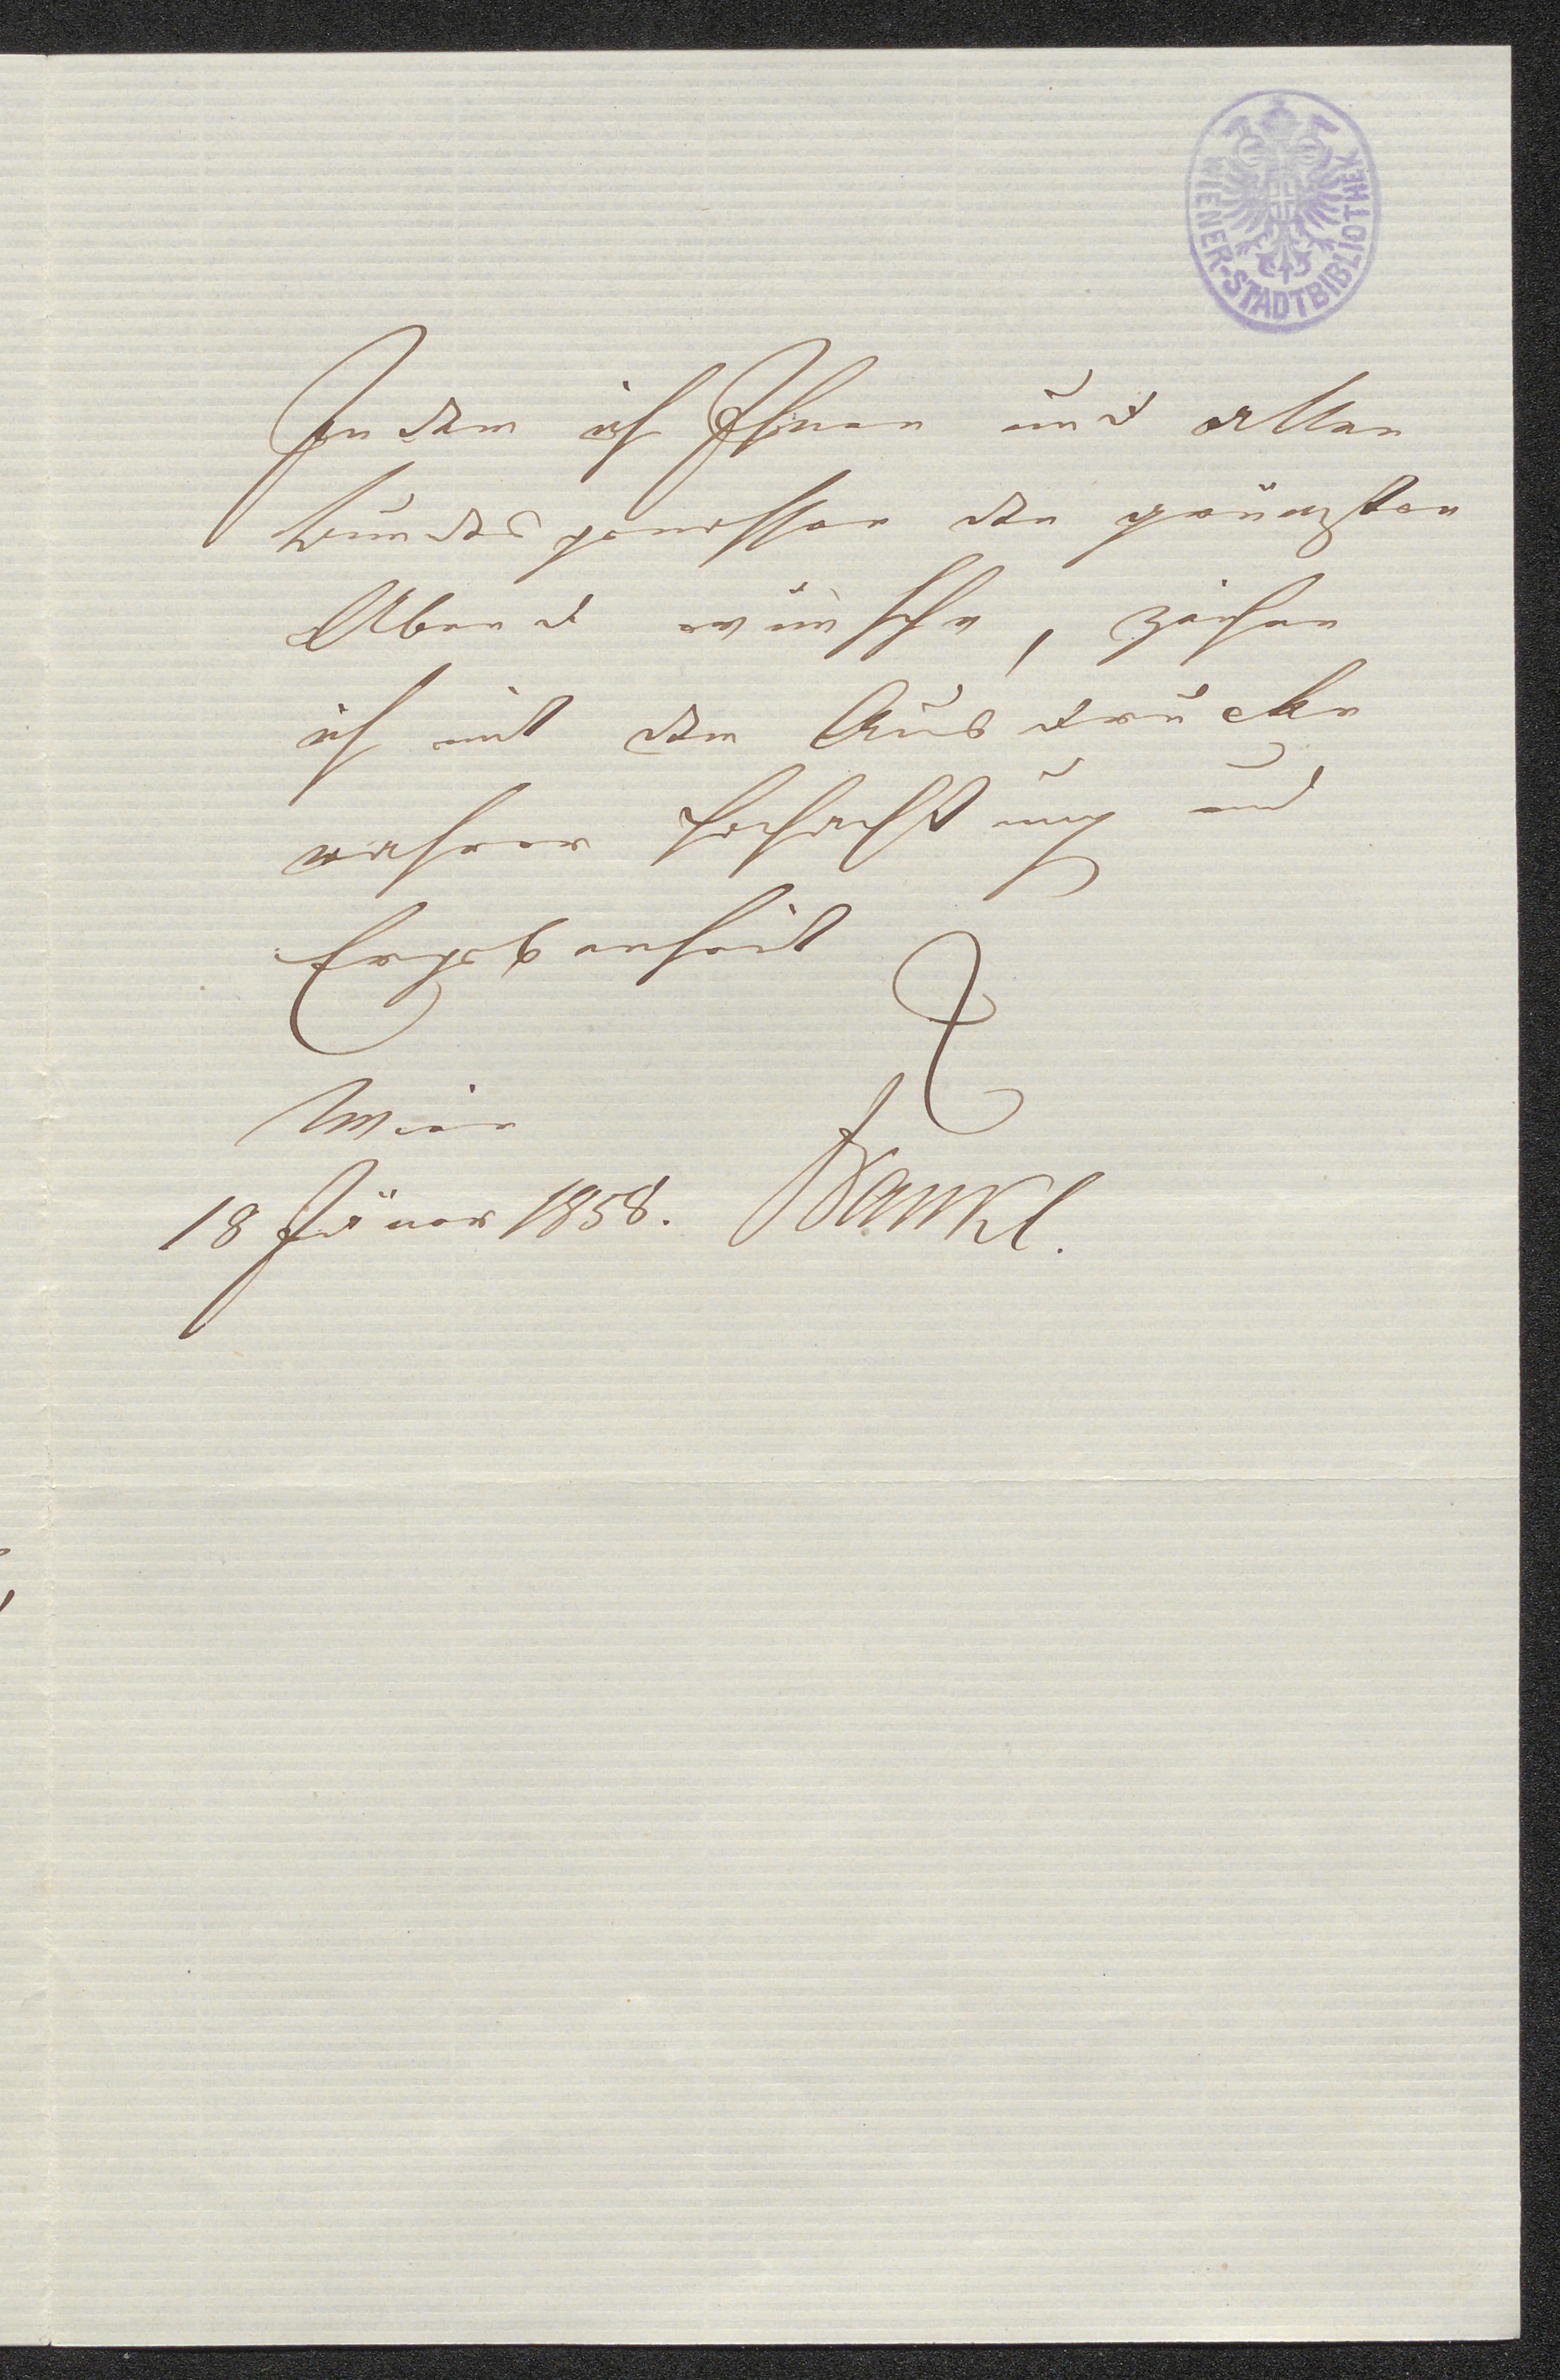 WIENER-STADTBIBLIOTHEK
Indem ich Ihnen und allen
Bundesgenossen den
Abend wünsche, zeichne
ich mit dem Ausdrucke
wahrer Hochachtung und
Ergebenheit
Wien
18 Jäner 1858. Frankl.